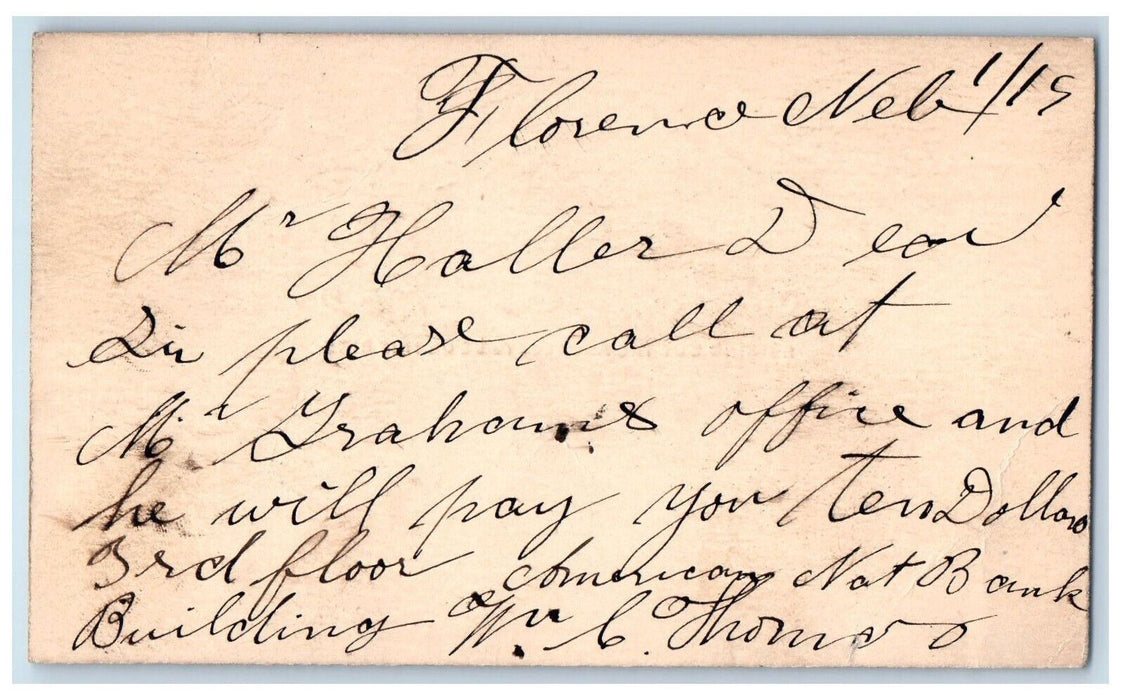 Florence Neb 1/19
Mr Haller Dear
Sir please call at
Mr Grahams office and
he will pay you ten Dollars
3rd floor American Nat Bank
Building Wm C. Thomas